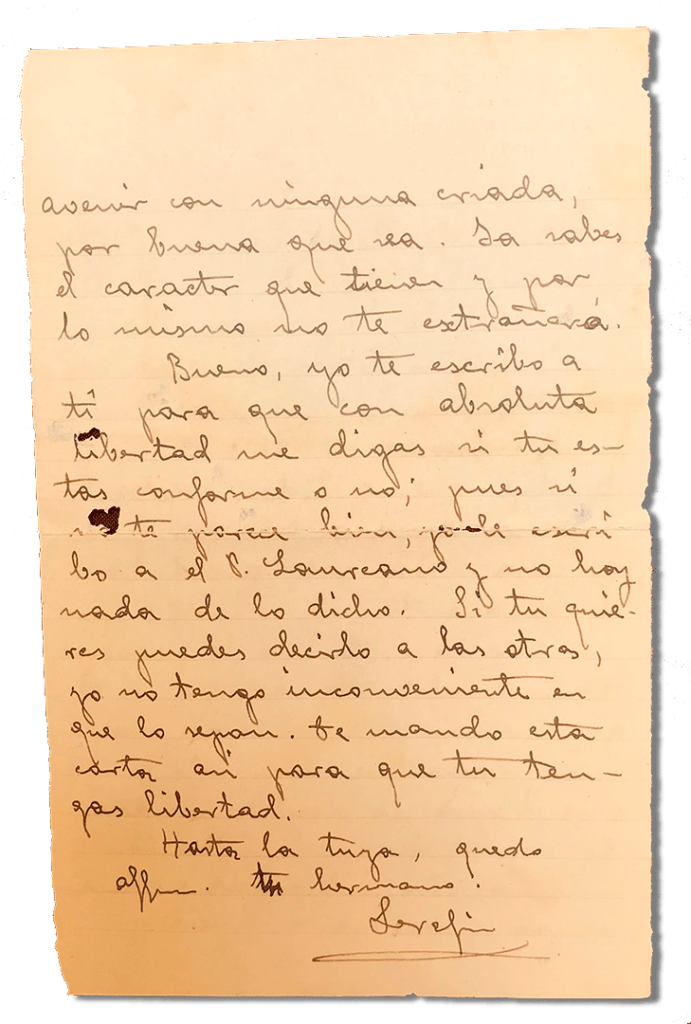 avenir con ninguna criada,
por buena que sea. Ya sabes
el caracter que tienen y por
lo mismo no te extrañará.
Bueno, yo te escribo a
ti para que con absoluta
libertad me digas si tu es-
tas conforme o no; pues si
no te parece bien, yo le escri
bo a el P. Laureano y no hay
nada de lo dicho. Si tu quie-
res puedes decirlo a las otras,
yo no tengo inconveniente en
que lo sepan. te mando esta
carta asi para que tu ten-
gas libertad.
Hasta la tuya, quedo
affmo. tu hermano.
Serafin